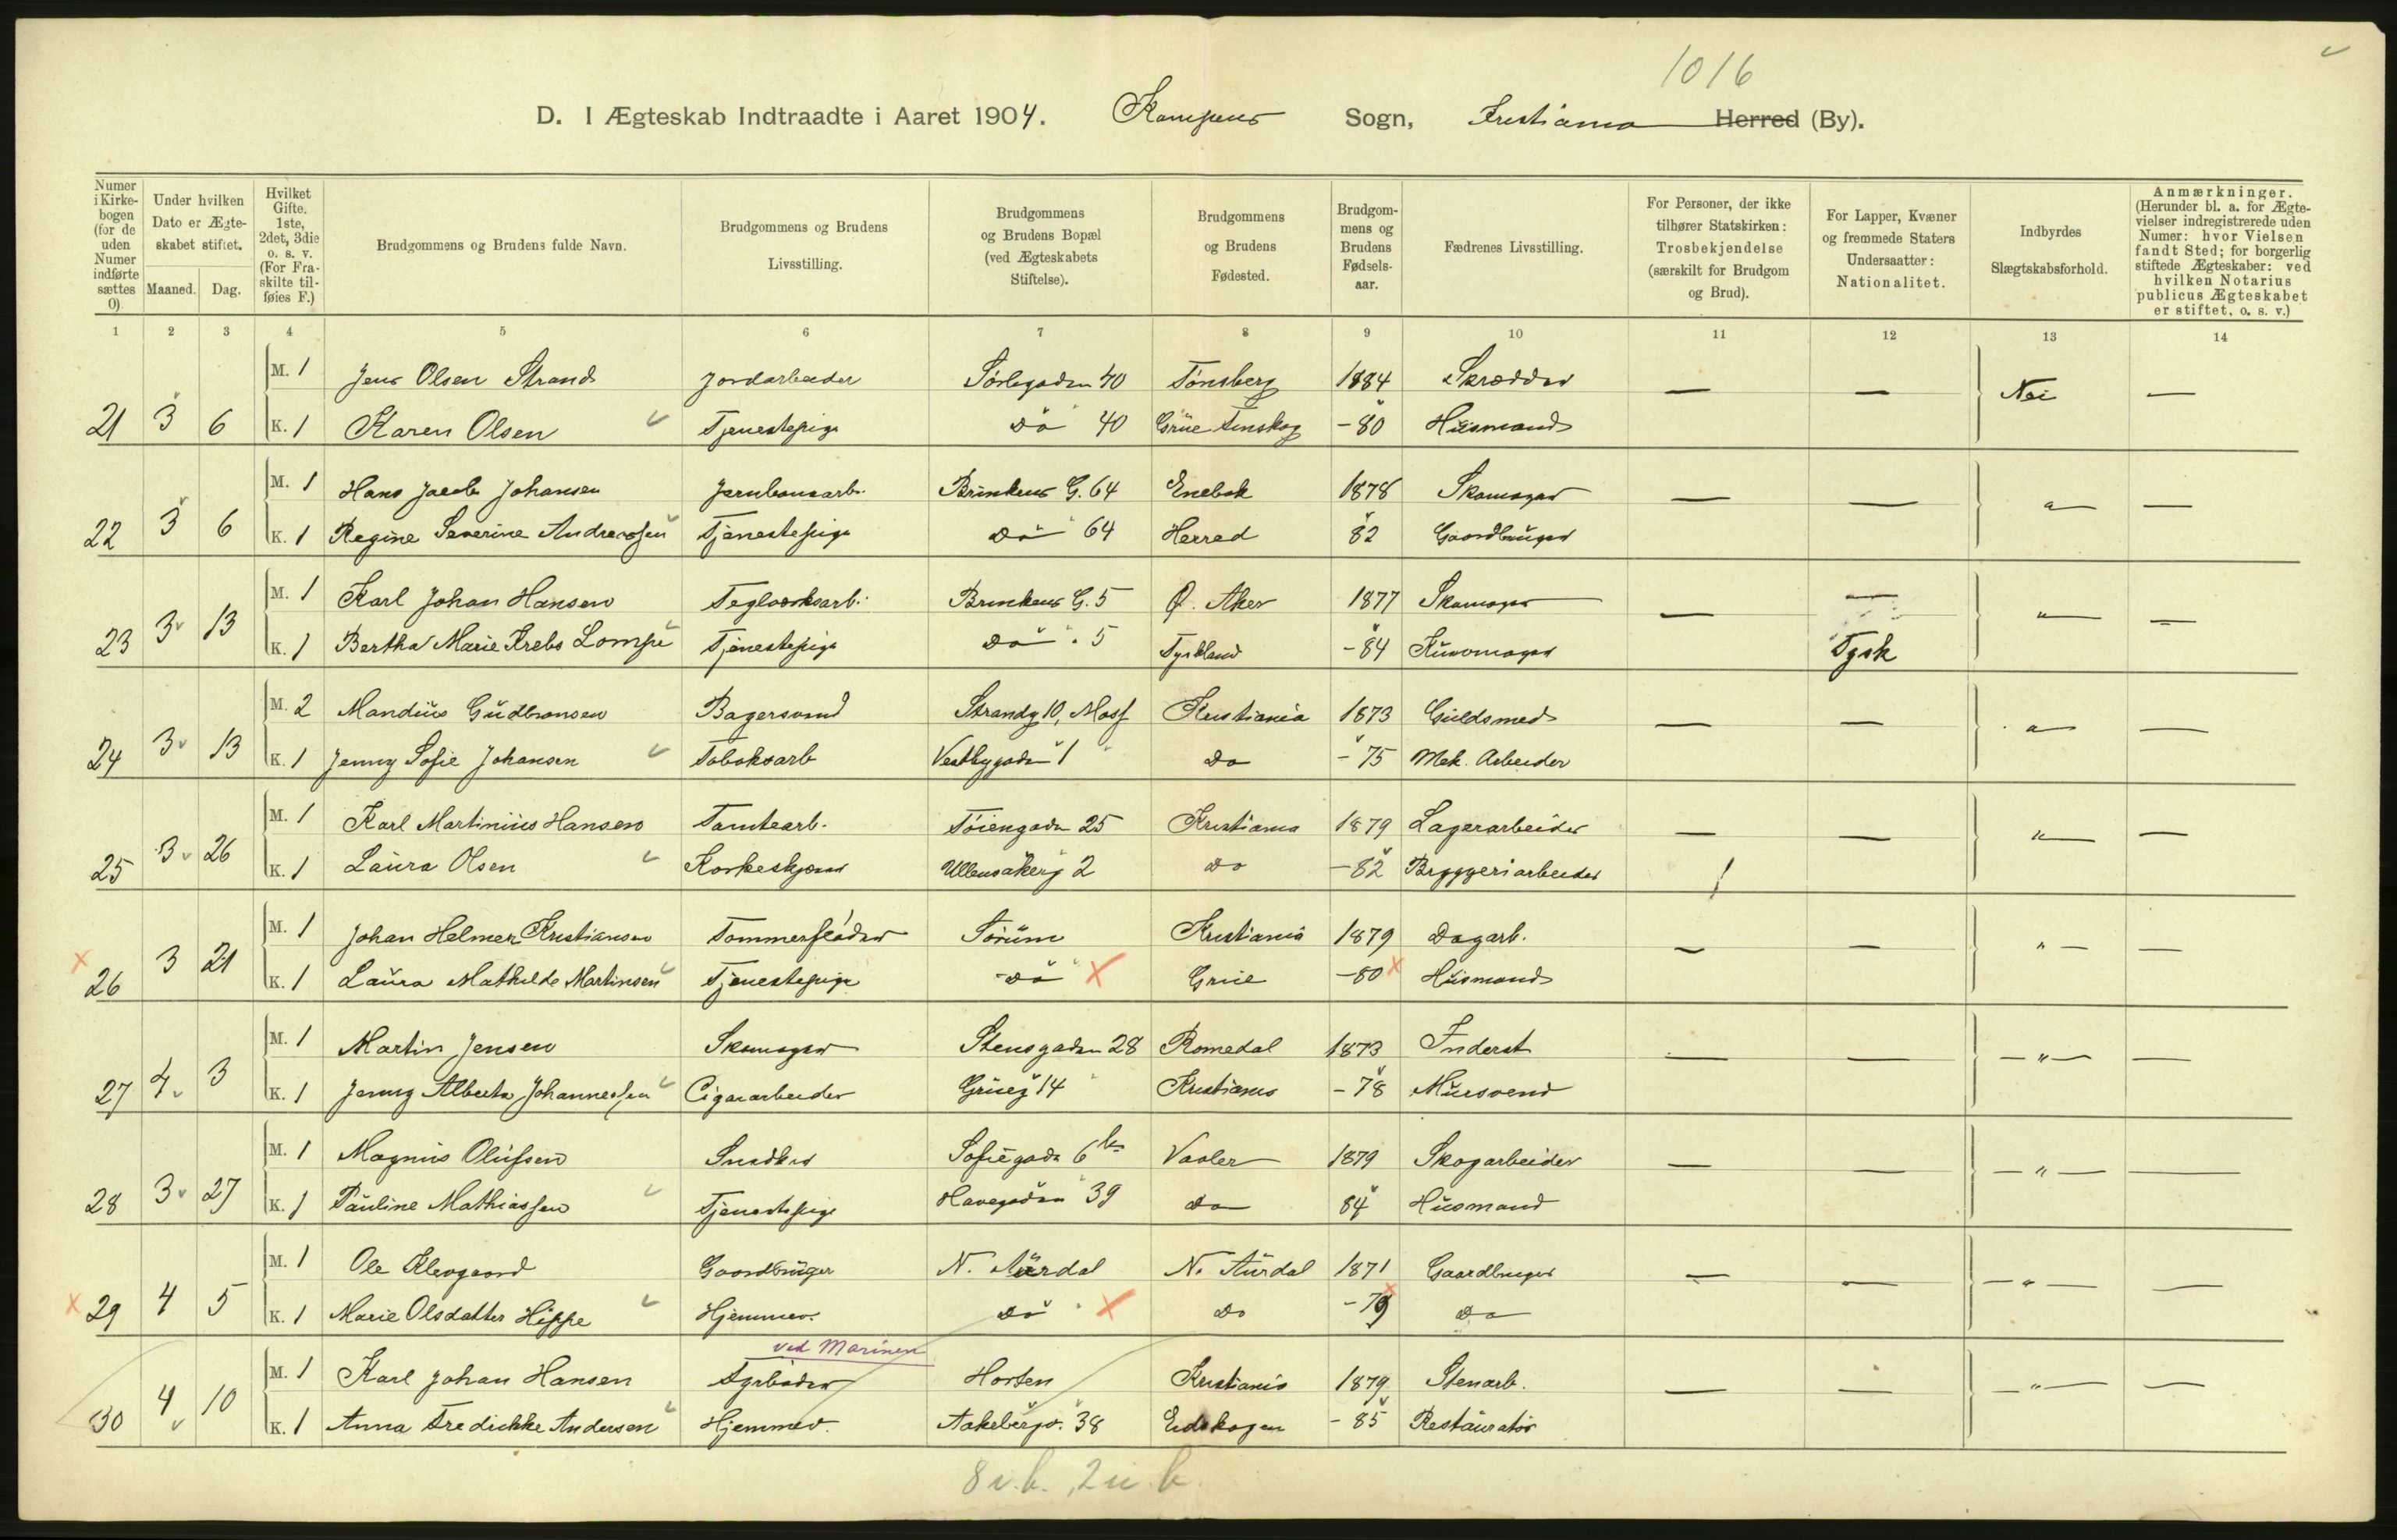 1016
D. I Ægteskab Indtraadte i Aaret 1904. Kampens Sogn, Kristiania Herred (By).
Numer i Kirkebogen (for de uden Numer indførte sættes 0).
Under hvilken Dato er Ægteskabet stiftet. Maaned. Dag.
Hvilket Gifte. 1ste, 2det, 3die o. s. v. (For Fraskilte tilføies F.)
Brudgommens og Brudens fulde Navn.
Brudgommens og Brudens Livsstilling.
Brudgommens og Brudens Bopæl (ved Ægteskabets Stiftelse).
Brudgommens og Brudens Fødested.
Brudgommens og Brudens Fødselsaar.
Fædrenes Livsstilling.
For Personer, der ikke tilhører Statskirken: Trosbekjendelse (særskilt for Brudgom og Brud).
For Lapper, Kvæner og fremmede Staters Undersaatter: Nationalitet.
Indbyrdes Slægtskabsforhold.
Anmærkninger. (Herunder bl. a. for Ægtevielser indregistrerede uden Numer: hvor Vielsen fandt Sted; for borgerlig stiftede Ægteskaber: ved hvilken Notarius publicus Ægteskabet er stiftet, o. s. v.)
1 2 3 4 5 6 7 8 9 10 11 12 13 14
M. 1 Jens Olsen Strand Jordarbeider Sørlegaden 40 Tønsberg 1884 Skrædder — — Nei —
21 3 6 K. 1 Karen Olsen Tjenestepige Do 40 Grue Finskog -80 Husmand
M. 1 Hans Jacob Johansen Jernbanearb. Brinkens G. 64 Enebak 1878 Skomager — — " —
22 3 6 K. 1 Regine Severine Andreassen Tjenestepige Do 64 Herred 82 Gaardbruger
M. 1 Karl Johan Hansen Teglverksarb. Brinkens G. 5 Ø. Aker 1877 Skomager — — " —
23 3 13 K. 1 Bertha Marie Krebs Lompe Tjenestepige Do " 5 Tyskland -84 Kurvmager Tysk
M. 2 Mandius Gudbransen Bagersvend Strandg 10, Moss Kristiania 1873 Guldsmed — — " —
24 3 13 K. 1 Jenny Sofie Johansen Tobaksarb Vestbygaden 1 Do -75 Mek. Arbeider
M. 1 Karl Martinius Hansen Tomtearb. Tøiengaden 25 Kristiania 1879 Lagerarbeider — — " —
25 3 26 K. 1 Laura Olsen Korkeskjærer Ullensakerg 2 Do -82 Bryggeriarbeider
M. 1 Johan Helmer Kristiansen Tømmerfløder Sørum Kristiania 1879 Dagarb. — — " —
26 3 21 K. 1 Laura Mathilde Martinsen Tjenestepige Do Grue -80 Husmand
M. 1 Martin Jensen Skomager Stensgaden 28 Romedal 1873 Inderst — — " —
27 4 3 K. 1 Jenny Alberta Johannessen Cigararbeider Grueg 14 Kristiania -78 Mursvend
M. 1 Magnus Olufsen Snedker Sofiegade 6 b Vaaler 1879 Skogarbeider — — " —
28 3 27 K. 1 Pauline Mathiassen Tjenestepige Havegaden 39 Do 84 Husmand
M. 1 Ole Klevgaard Gaardbruger N. Aurdal N. Aurdal 1871 Gaardbruger — — " —
29 4 5 K. 1 Marie Olsdatter Hippe Hjemmev. Do Do -79 Do
ved Marinen
M. 1 Karl Johan Hansen Fyrbøder Horten Kristiania 1879 Stenarb. — — " —
30 4 10 K. 1 Anna Fredrikke Andersen Hjemmev. Aakebergv. 38 Eidskogen -85 Restauratør
8 i.b., 2 u.b.